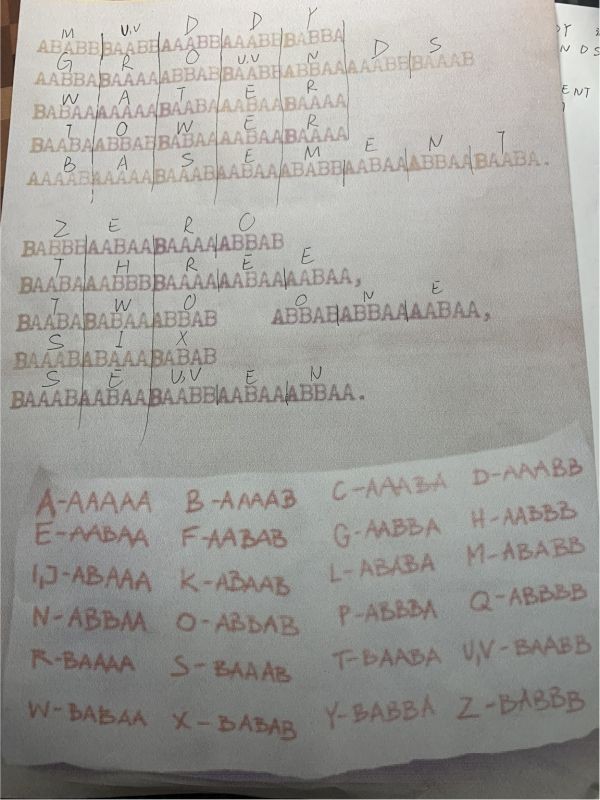 M U,V D D Y
ABABB|BAABB|AAABB|AAABB|BABBA
G R O U,V N D S
AABBA|BAAAA|ABBAB|BAABB|ABBAA|AAABB|BAAAB
W A T E R
BABAA|AAAAA|BAABA|AABAA|BAAAA
T O W E R
BAABA|ABBAB|BABAA|AABAA|BAAAA
B A S E M E N T
AAAAB|AAAAA|BAAAB|AABAA|ABABB|AABAA|ABBAA|BAABA.
Z E R O
BABBB|AABAA|BAAAA|ABBAB
T H R E E
BAABA|AABBB|BAAAA|AABAA|AABAA,
T W O O N E
BAABA|BABAA|ABBAB ABBAB|ABBAA|AABAA,
S I X
BAAAB|ABAAA|BABAB
S E U,V E N
BAAAB|AABAA|BAABB|AABAA|ABBAA.
A-AAAAA B-AAAAB C-AAABA D-AAABB
E-AABAA F-AABAB G-AABBA H-AABBB
I,J-ABAAA K-ABAAB L-ABABA M-ABABB
N-ABBAA O-ABBAB P-ABBBA Q-ABBBB
R-BAAAA S-BAAAB T-BAABA U,V-BAABB
W-BABAA X-BABAB Y-BABBA Z-BABBB
DY
NDS
ENT